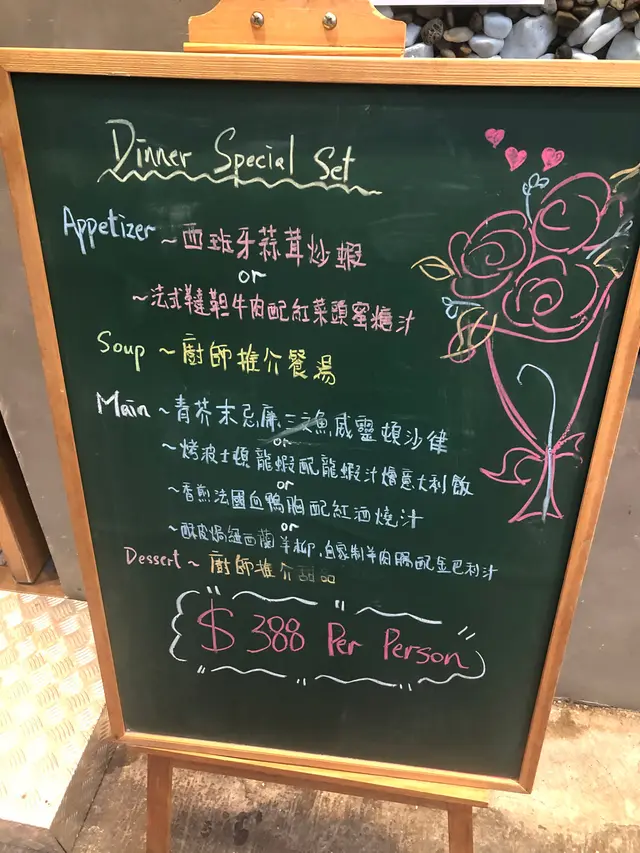 Dinner Special Set
Appetizer ~ 西班牙蒜茸炒蝦
or
~法式韃靼牛肉配紅菜頭蜜糖汁
Soup ~ 廚師推介餐湯
Main ~ 青芥末忌廉三文魚威靈頓沙律
or
~烤波士頓龍蝦配龍蝦汁燴意大利飯
or
~香煎法國血鴨胸配紅酒燒汁
or
~酥皮焗紐西蘭羊柳,自家制羊肉腸配金巴利汁
Dessert ~ 廚師推介甜品
$388 Per Person